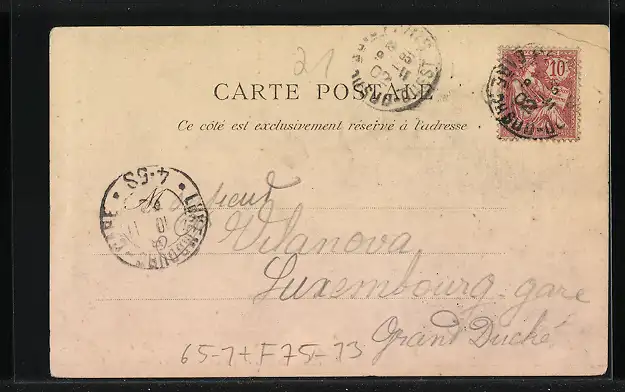 21
10
CARTE POSTALE
Ce côté est exclusivement réservé à l'adresse
Monsieur
Vilanova
Luxembourg-gare
Grand Duché
LUXEMBOURG-GARE
4-5S
65-1+F75-13